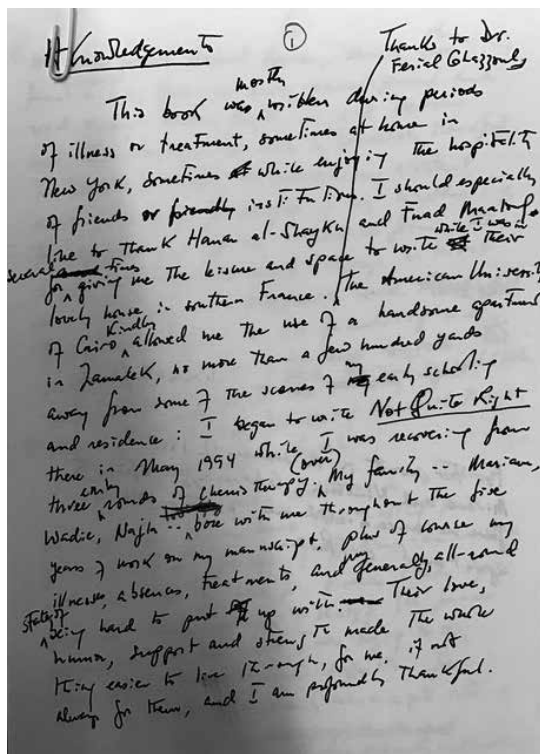 Acknowledgements
①
Thanks to Dr.
Ferial Ghazzoul
mostly
This book was written during periods
of illness or treatment, sometimes at home in
New York, sometimes while enjoying the hospitality
of friends or friendly institutions. I should especially
like to thank Hanan al-Shaykh and Fuad Maalouf
while I was in
several times
for giving me the leisure and space to write their
lovely house in southern France. The American University
kindly
of Cairo allowed me the use of a handsome apartment
in Zamalek, no more than a few hundred yards
away from some of the scenes of my early schooling
and residence: I began to write Not Quite Right
there in May 1994 while I was recovering from
early
(over)
three rounds of chemotherapy. My family -- Mariam,
Wadie, Najla -- bore with me throughout the five
years of work on my manuscript, plus of course my
illnesses, absences, treatments, and my generally all-round
state of
being hard to put up with. Their love,
humor, support and strength made the whole
thing easier to live through, for me, if not
always for them, and I am profoundly thankful.